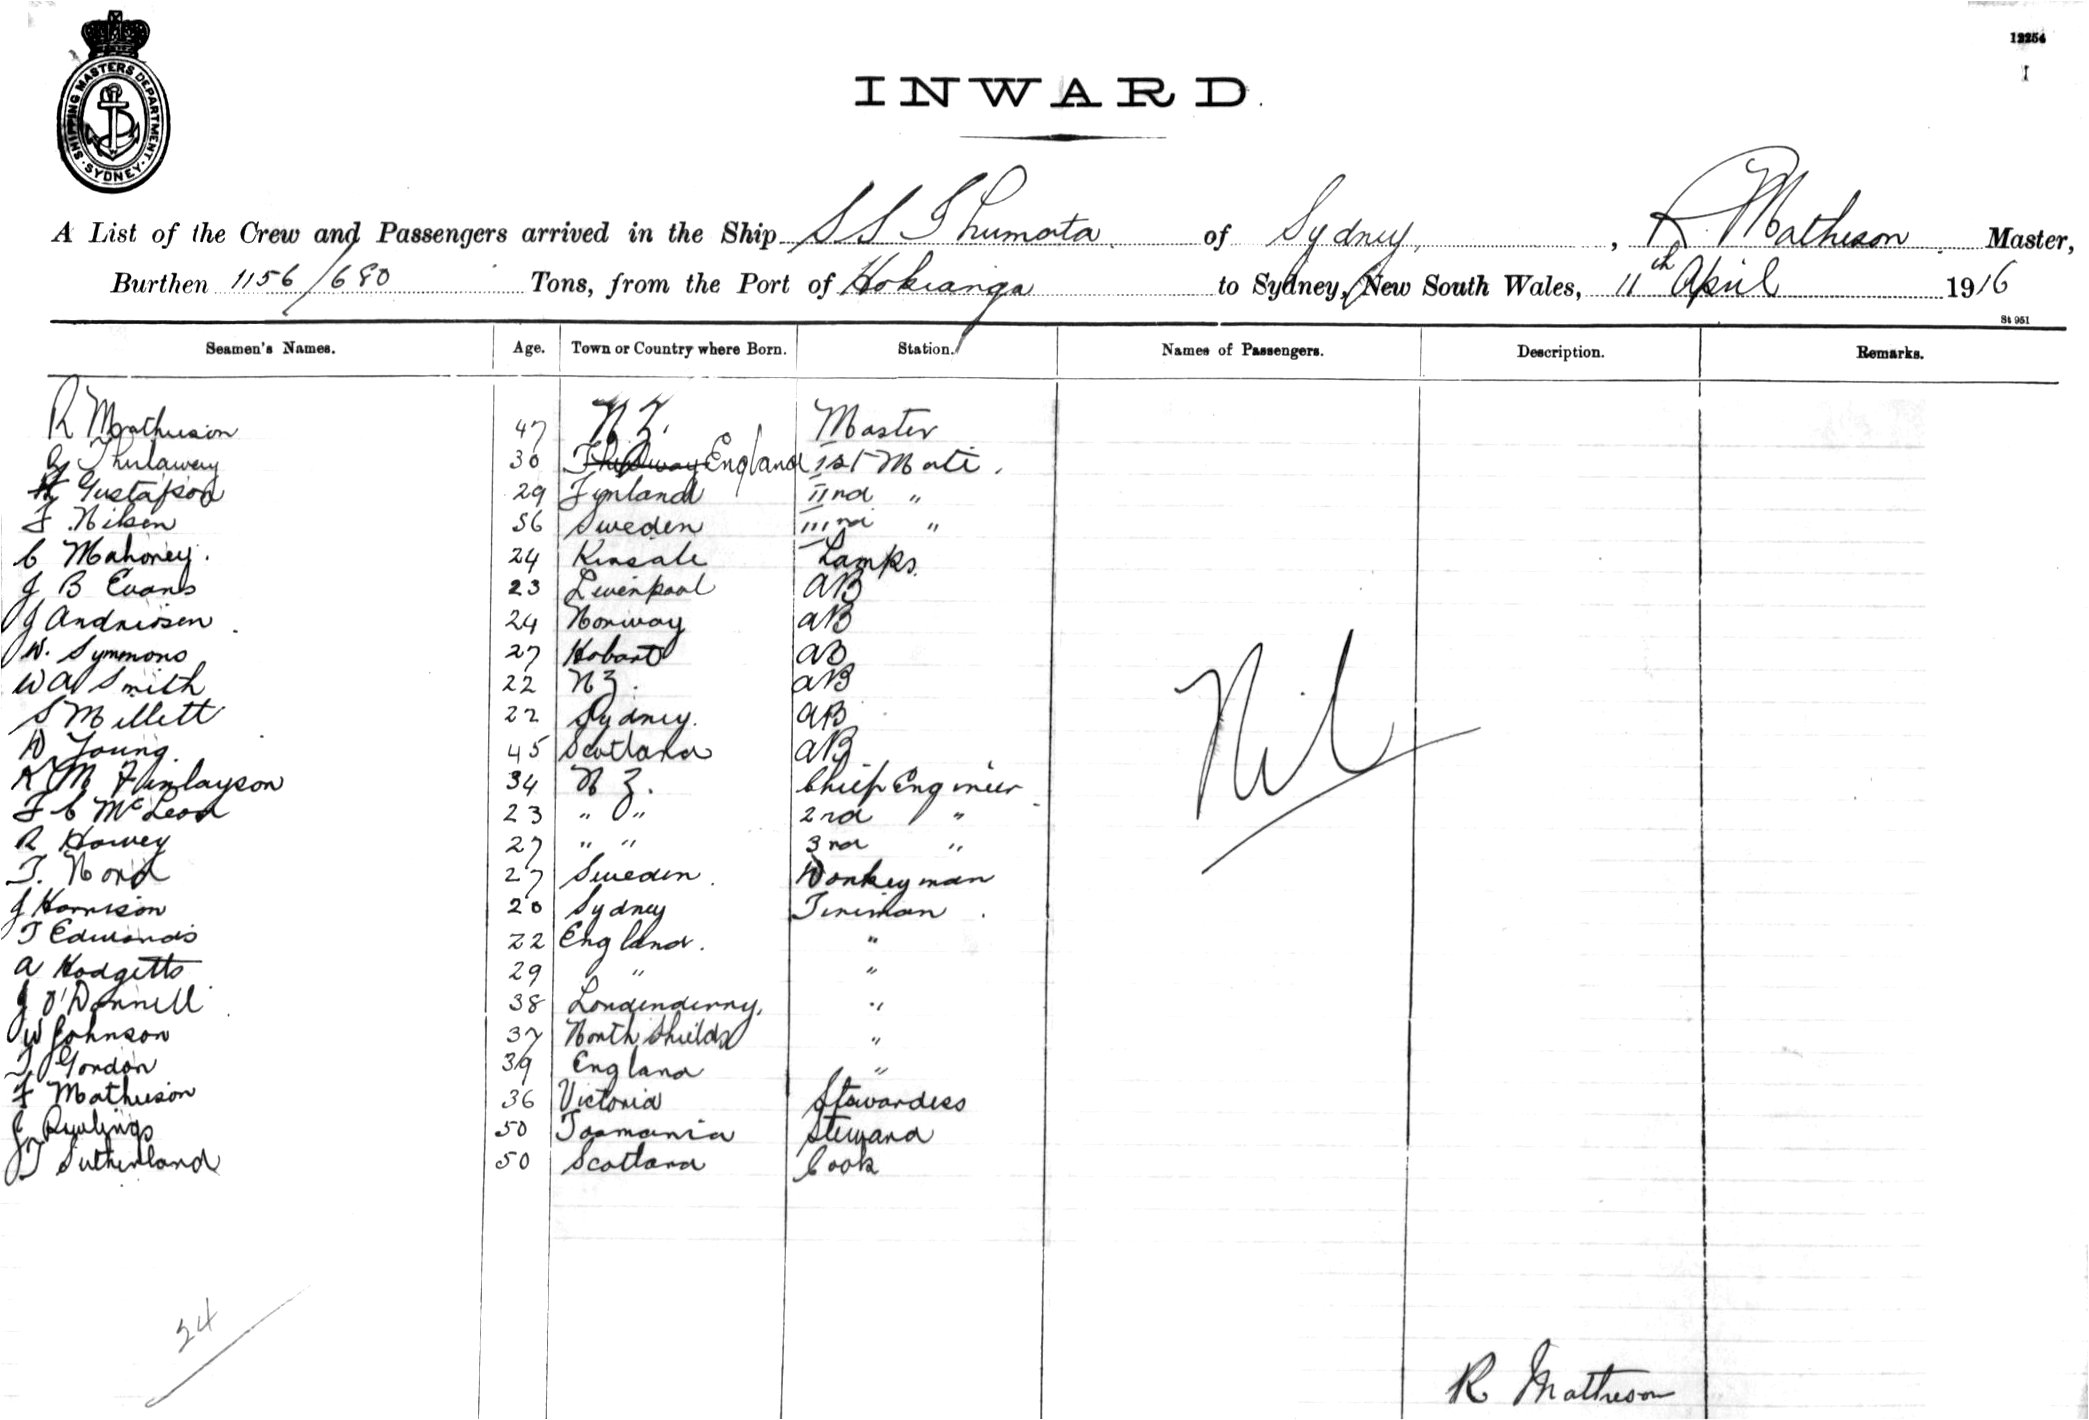 SHIPPING MASTERS DEPARTMENT · SYDNEY ·
12254
I
INWARD.
A List of the Crew and Passengers arrived in the Ship S S Thumata of Sydney, R. Matheson Master,
Burthen 1156/680 Tons, from the Port of Hokianga to Sydney, New South Wales, 11th April 1916
St 951
Seamen's Names. Age. Town or Country where Born. Station. Names of Passengers. Description. Remarks.
R Matheson 47 N.Z. Master
30 England 1st Mate.
Gustafson 29 Finland IInd "
F. Nilsen 56 Sweden IIIrd "
C Mahoney. 24 Kinsale Lamps
J B Evans 23 Liverpool AB
J Andriesen 24 Norway AB
W. Symmons 27 Hobart AB
W A Smith 22 N Z. AB
S Millett 22 Sydney. AB
D Young 45 Scotland AB
K M Finlayson 34 N Z. Chief Engineer
F C McLeod 23 " " 2nd "
R Harvey 27 " " 3rd "
T. Nord 27 Sweden. Donkeyman
J Harrison 20 Sydney Fireman
T Edwards 22 England. "
A Hodgetts 29 " "
J O'Donnell 38 Londonderry, "
W Johnson 37 North Shields "
T Gordon 39 England "
F Matheson 36 Victoria Stewardess
Rawlings 50 Tasmania Steward
T Sutherland 50 Scotland Cook
Nil
24
R Matheson